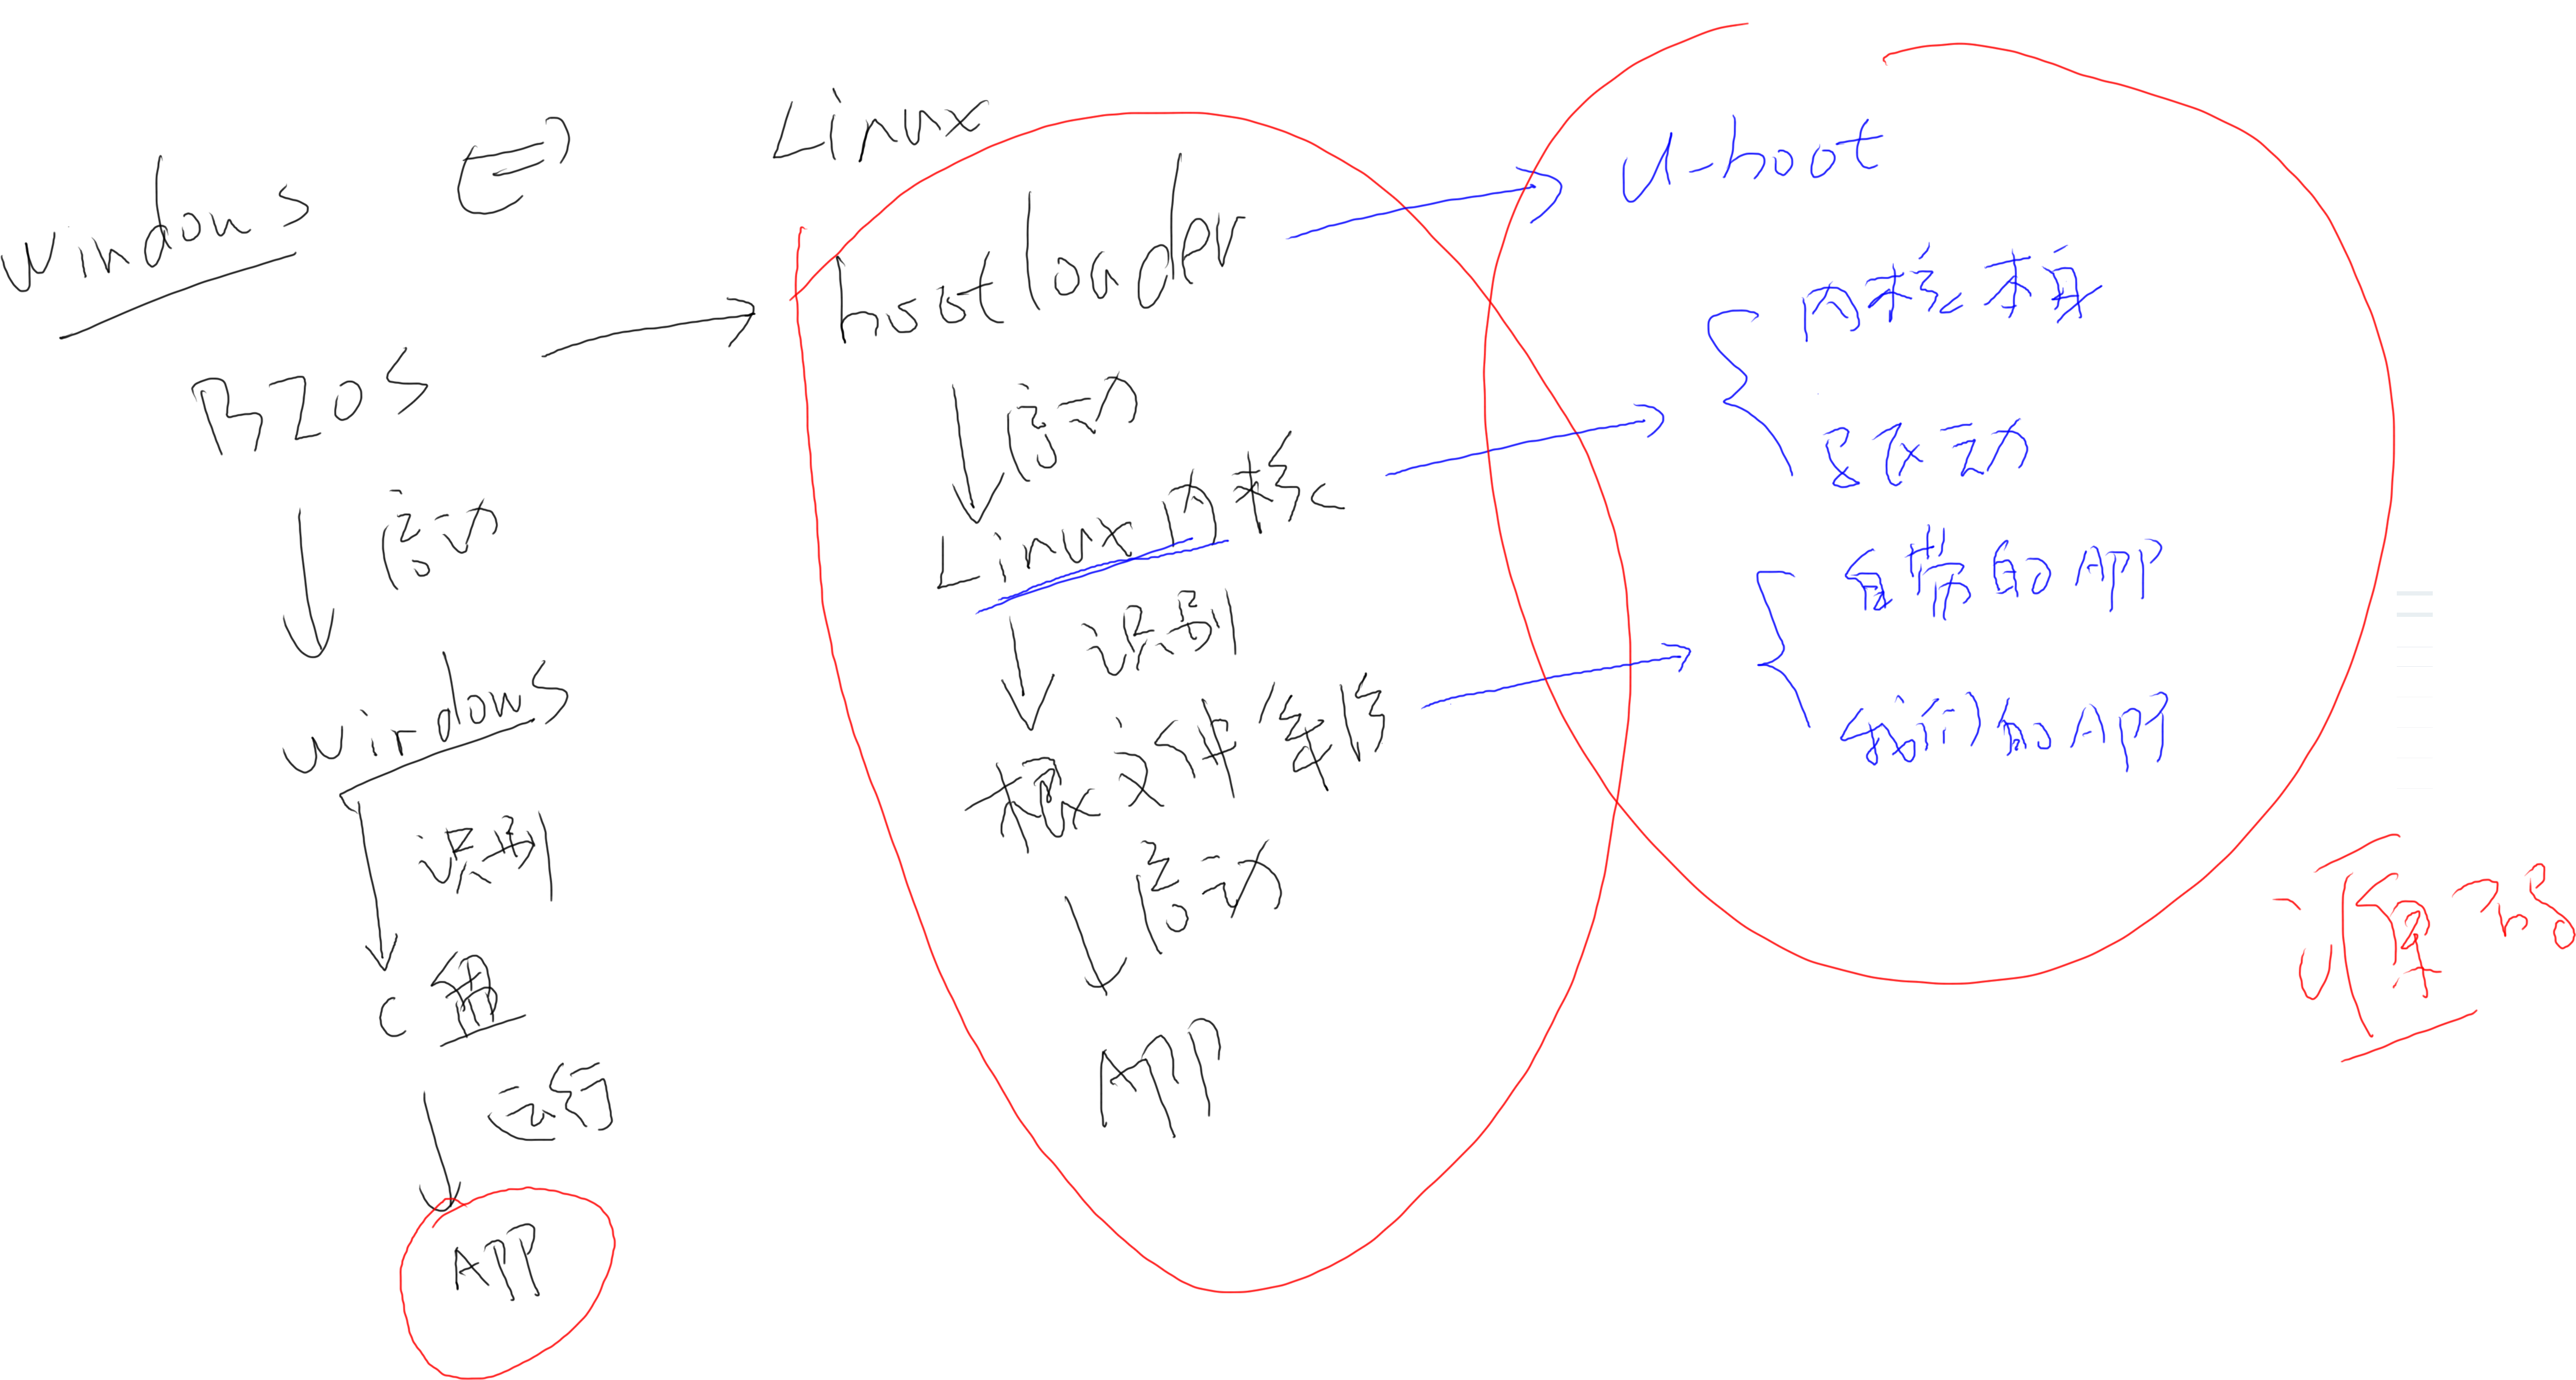 Windows
BIOS
启动
windows
识别
C盘
运行
APP
Linux
bootloader
启动
Linux内核
识别
根文件系统
启动
APP
u-boot
内核本身
驱动
自带的APP
我们的APP
源码